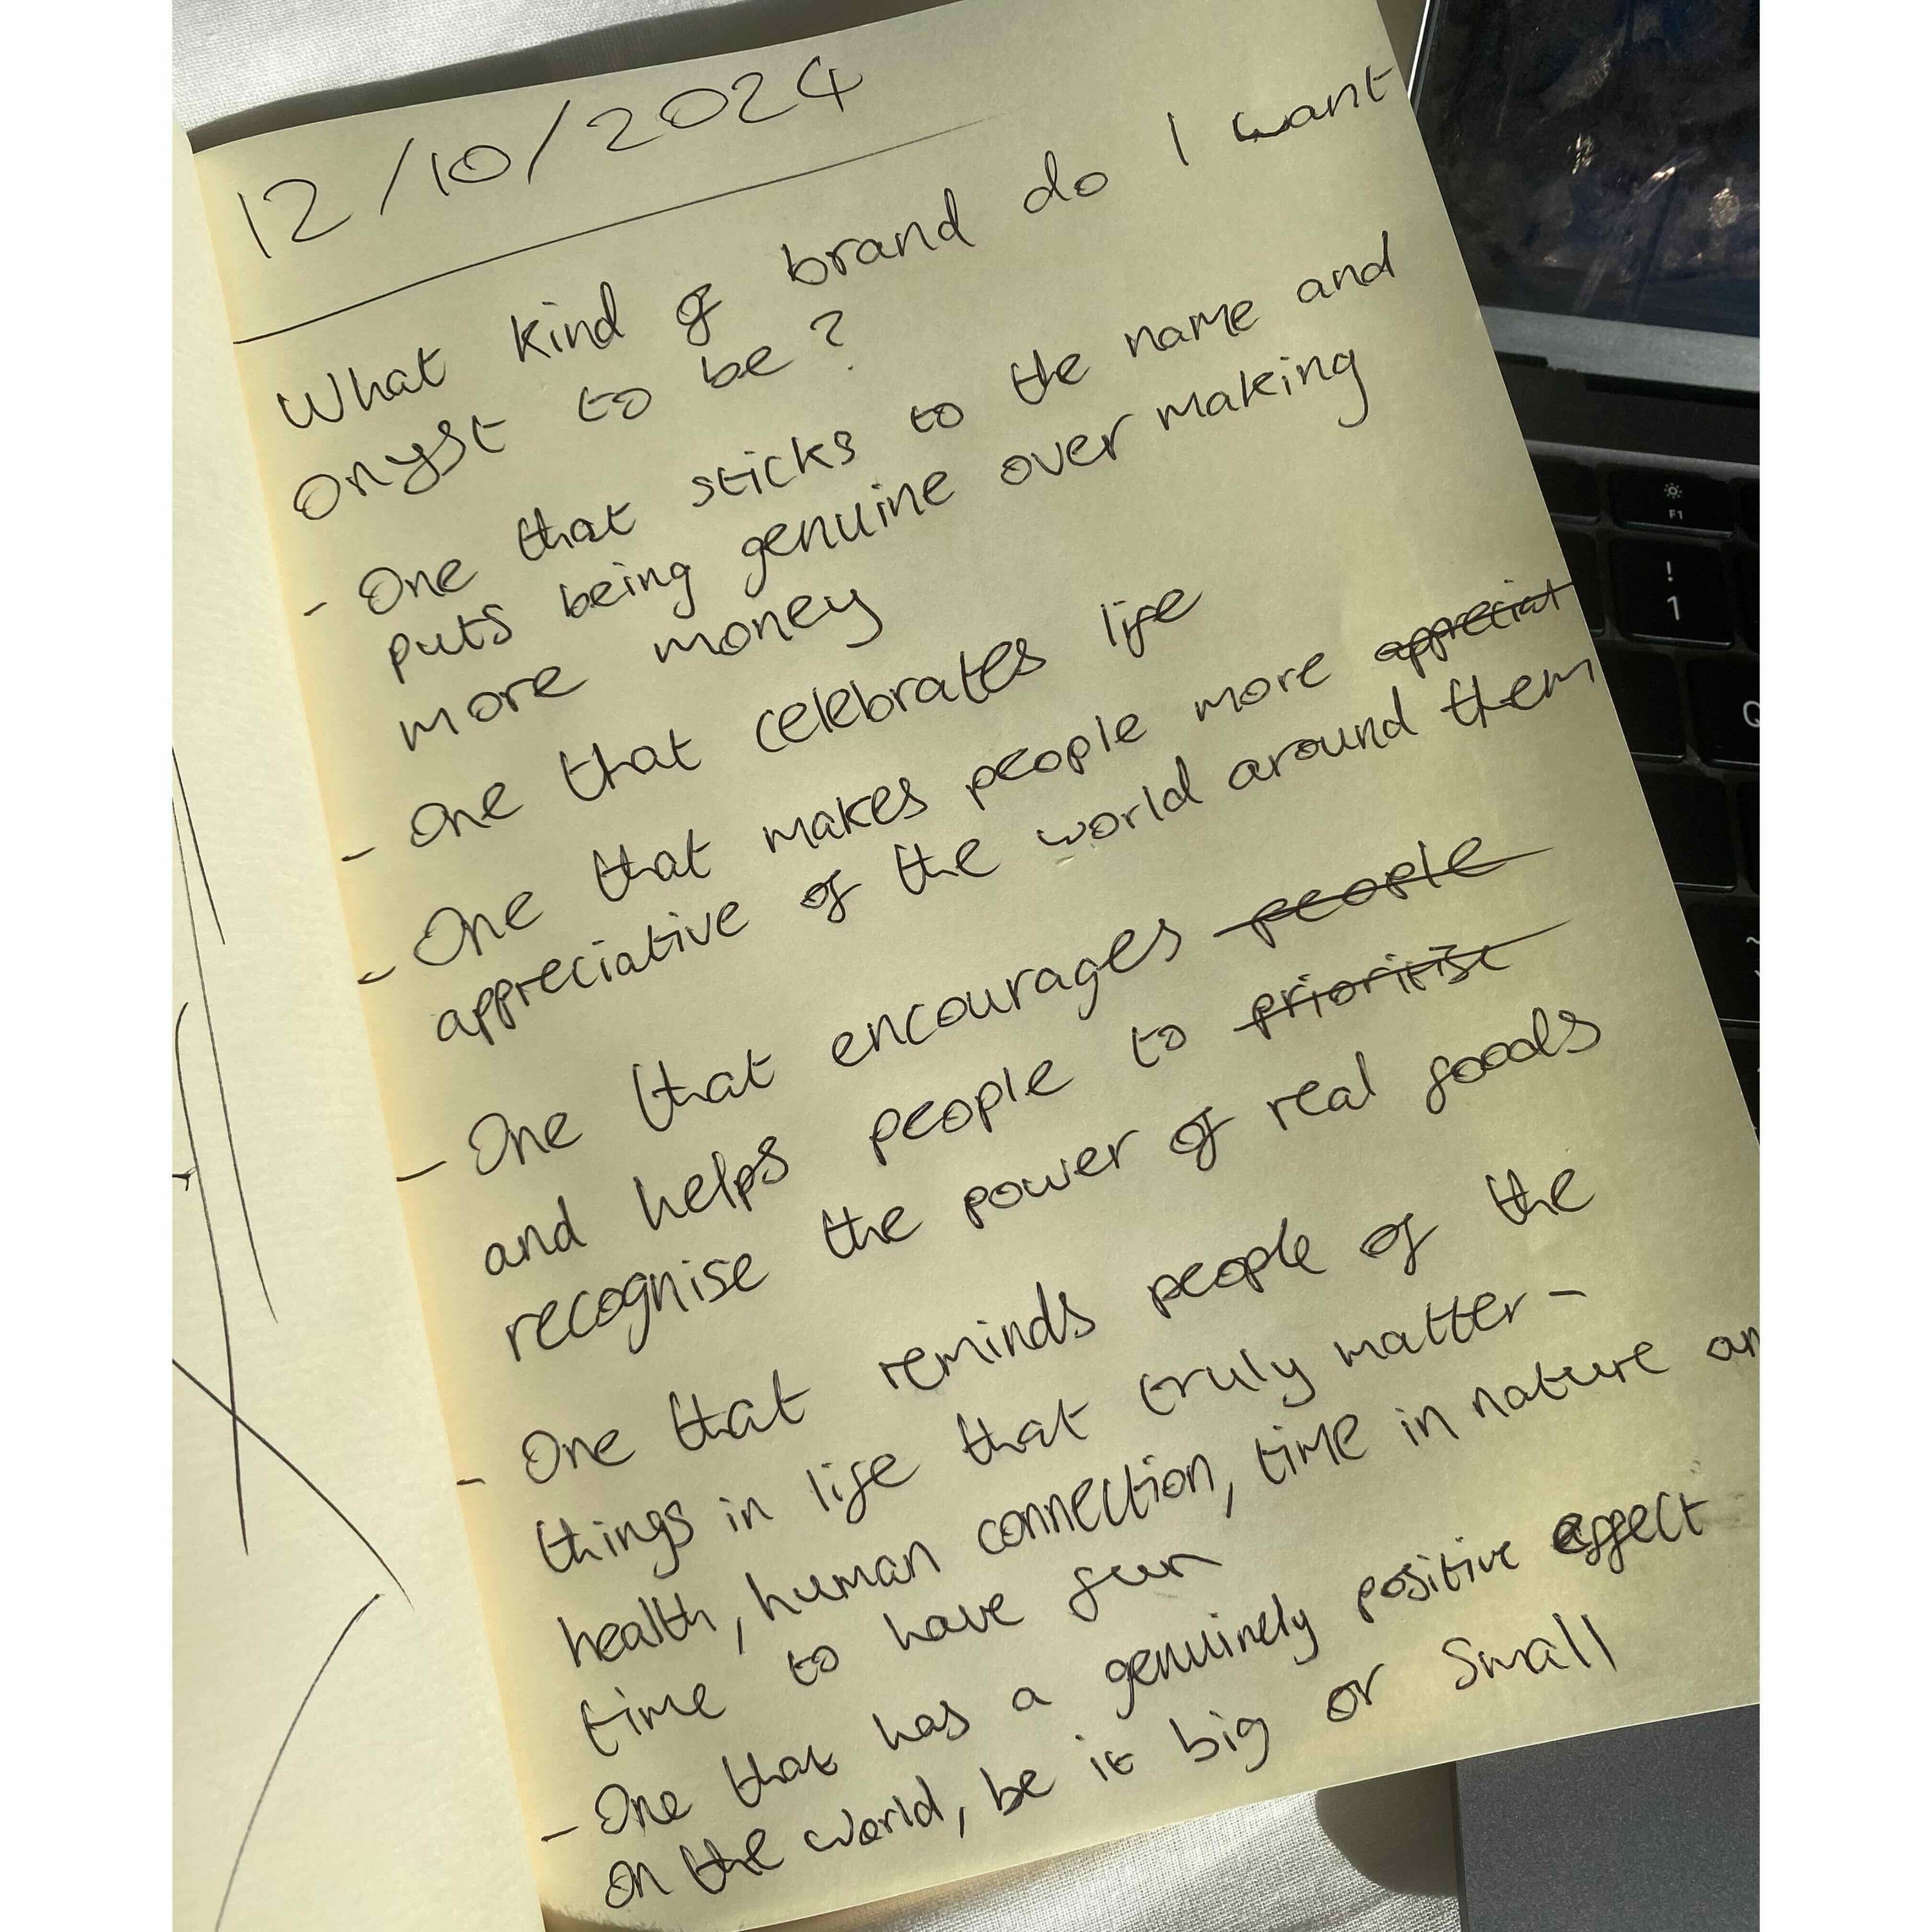 12/10/2024
What kind of brand do I want
onyst to be?
- One that sticks to the name and
puts being genuine over making
more money
- One that celebrates life
- One that makes people more appreciat
appreciative of the world around them
- One that encourages people
and helps people to prioritise
recognise the power of real foods
- One that reminds people of the
things in life that truly matter -
health, human connection, time in nature an
time to have fun
- One that has a genuinely positive effect
on the world, be it big or small
F1
!
1
Q
~